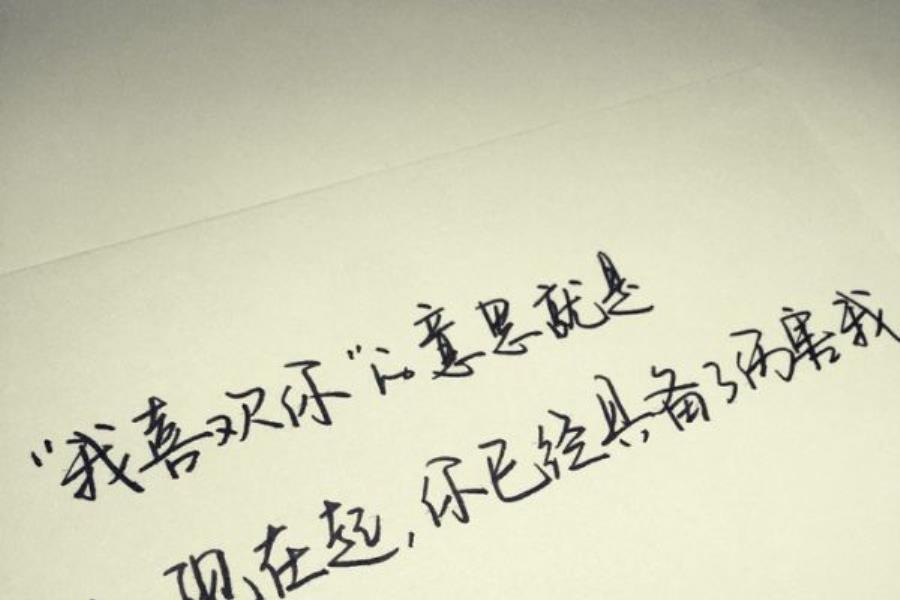 “我喜欢你”的意思就是
现在起,你已经具备了伤害我